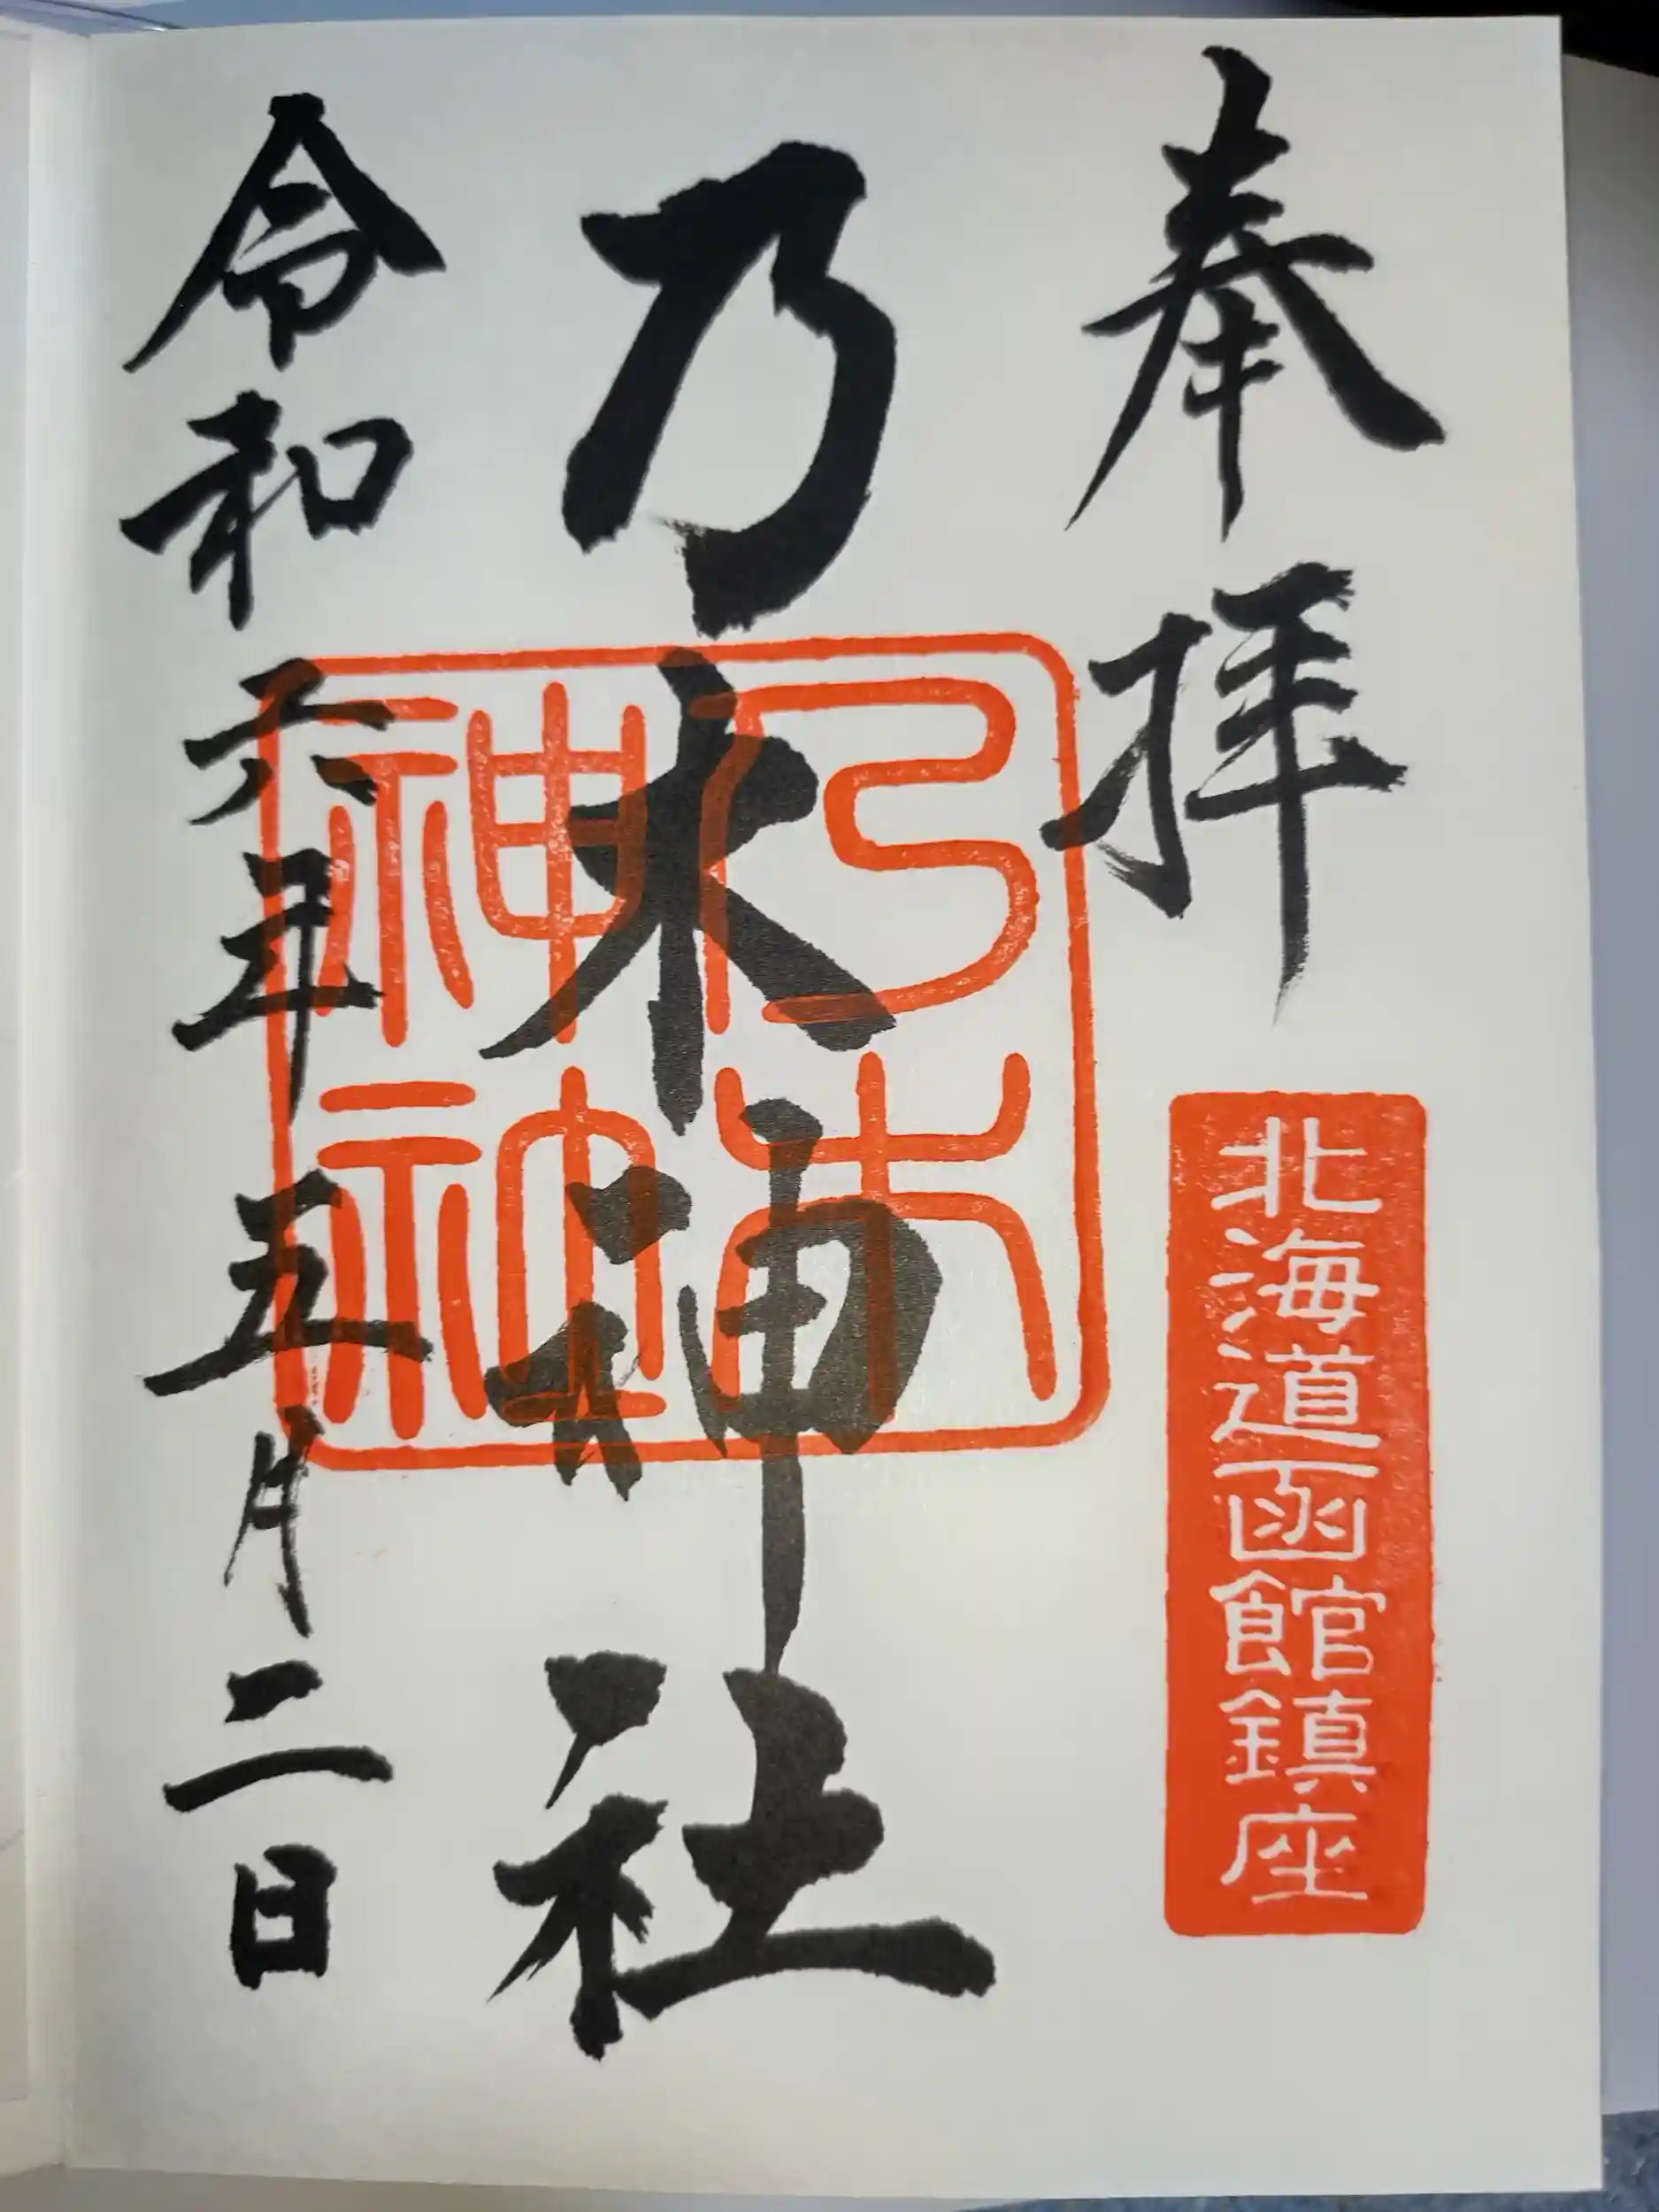 奉拝
北海道函館鎮座
乃木神社
乃木
神社
令和六年五月二日